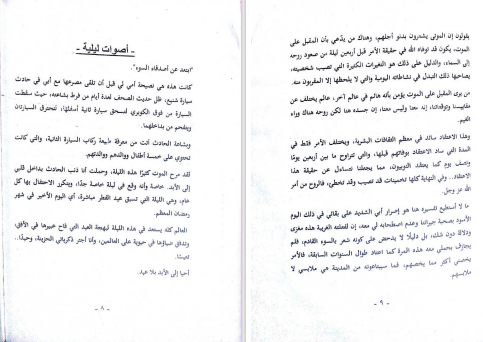 - أصوات ليلية -
"ابتعد عن أصدقاء السوء".
كانت هذه هي نصيحة أمي لي قبل أن تلقى مصرعها مع أبي في حادث
سيارة شنيع، ظل حديث الصحف لعدة أيام من فرط بشاعته، حيث سقطت
السيارة من فوق الكوبري لتسحق سيارة ثانية أسفلها، لتحترق السيارتان
ويتفحم من بداخلهما.
وبشاعة الحادث أتت من معرفة طبيعة ركاب السيارة الثانية، والتي كانت
تحتوي على خمسة أطفال ووالدهم ووالدتهم.
لقد مرح الموت كثيرًا هذه الليلة، وحملت أنا ذنب الحادث بداخل قلبي
إلى الأبد. خاصة وأنه وقع في ليلة خاصة جدًا، ويتكرر الاحتفال بها كل
عام، وهي الليلة التي تسبق عيد الفطر مباشرة، أي اليوم الأخير في شهر
رمضان المعظم.
العالم كله يسعد في هذه الليلة لبهجة العيد التي فاح عبيرها في الأفق،
وتدفق ضياؤها في حيوية على العالمين، وأنا أجتر ذكرياتي الحزينة، وحيدًا..
تعيسًا.
أحيا إلى الأبد بلا عيد.
- ٨ -
يقولون إن الموتى يشعرون بدنو أجلهم، وهناك من يدّعي بأن المقبل على
الموت، يكون قد توفاه الله في حقيقة الأمر قبل أربعين ليلة من صعود روحه
إلى السماء، والدليل على ذلك هو التغيرات الكثيرة التي تصيب شخصيته،
يصاحبها ذلك التبدل في نشاطاته اليومية والتي لا يلحظها إلا المقربون منه.
من يرى المقبل على الموت يؤمن بأنه هائم في عالم آخر، عالم يختلف عن
مقاييسنا وتوقعاتنا، إنه معنا وليس معنا، إن جسده هنا لكن روحه هناك وراء
الغيم.
وهذا الاعتقاد سائد في معظم الثقافات البشرية، ويختلف الأمر فقط في
المدة التي ساد الاعتقاد بوفاتهم قبلها، والتي تتراوح ما بين أربعين يومًا
ونصف يوم كما يعتقد النوبيون، مما يجعلنا نتساءل عن حقيقة هذا
الاعتقاد.. وفي النهاية كلها تخمينات قد تصيب وقد تخطئ، فالروح من أمر
الله عز وجل.
ما لا أستطيع تفسيره هنا هو إصرار أبي الشديد على بقائي في ذلك اليوم
الأسود بصحبة جيراننا وعدم اصطحابه لي معه، إن لفعلته الغريبة هذه مغزى
ودلالة دون شك، بل دليلًا لا يدحض على كونه شعر بالسوء القادم، فلم
يجازف بحملي معه هذه المرة كما اعتاد طوال السنوات السابقة، فالأمر
يخصني أكثر مما يخصهم، فما سيبتاعونه من المدينة هي ملابسي لا
ملابسهم.
- ٩ -